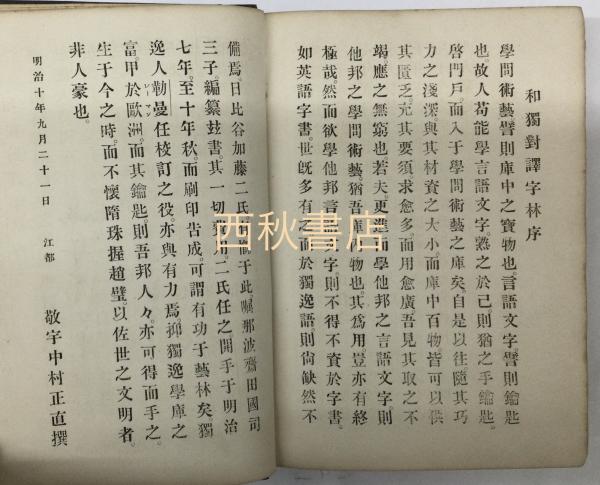 和獨對譯字林序
學問術藝譬則庫中之寶物也。言語文字譬則鑰匙
也。故人苟能學言語文字熟之於己。則猶之手鑰匙
啓門戶。而入于學問術藝之庫矣。自是以往隨其巧
力之淺深。與其材資之大小。而庫中百物皆可以供
其匱乏。充其要須求愈多。而用愈廣吾見其取之不
竭。應之無窮也。若夫更進而學他邦之言語文字。則
他邦之學問術藝。猶吾庫内物也。其爲用豈亦有終
極哉。然而欲學他邦言語文字。則不得不資於字書。
如英語字書。世旣多有之。而於獨逸語。則尙缺然不
備焉。日比谷加藤二氏有慨于此。囑那波齋田國司
三子。編纂玆書。其一切費用。二氏任之。開手于明治
七年。至十年秋。而刷印告成。可謂有功于藝林矣。獨
逸人勒曼任校訂之役。亦與有力焉。抑獨逸學庫之
レーマン
富甲於歐洲。而其鑰匙。則吾邦人々亦可得而手之。
生于今之時。而不懷隋珠握趙璧。以佐世之文明者。
非人豪也。
明治十年九月二十一日
江都
敬宇中村正直撰
西秋書店